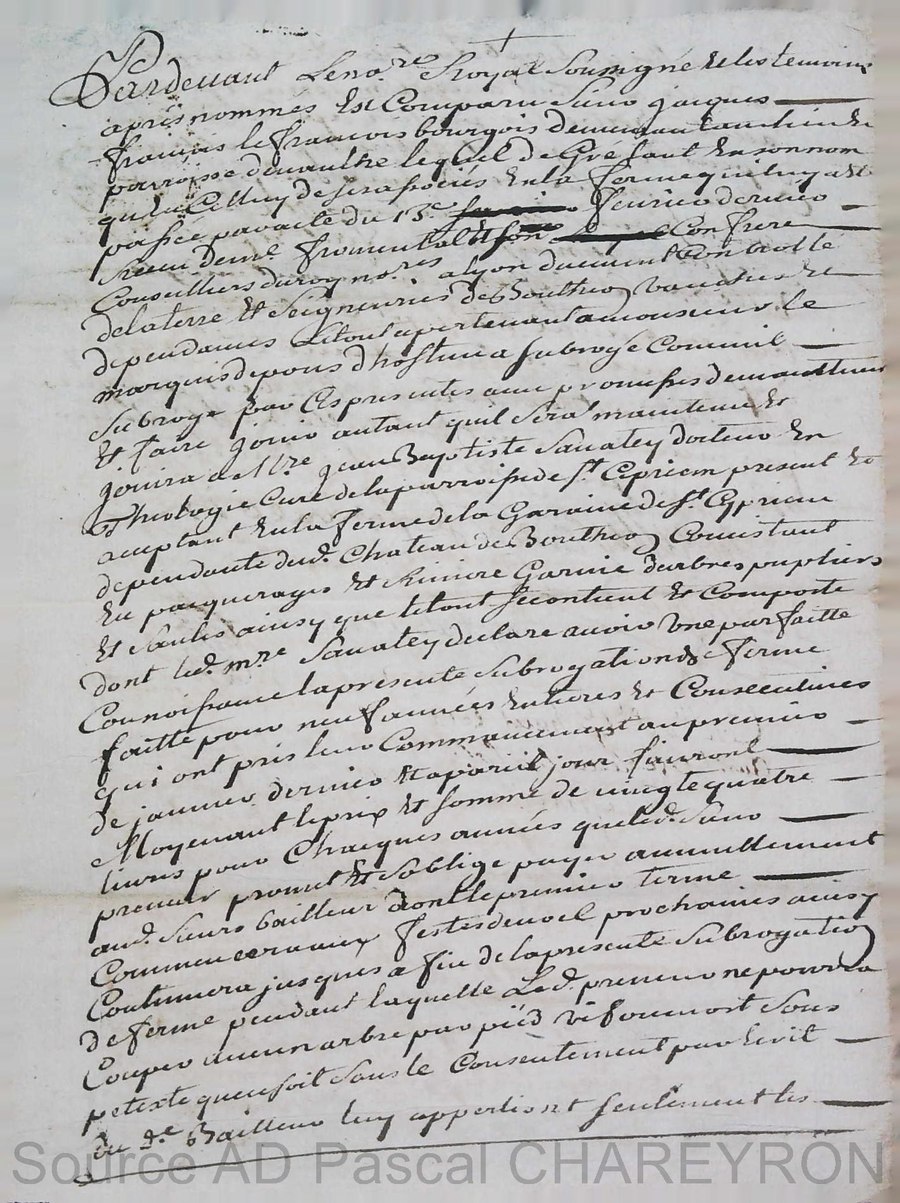 Pardevant Le no.re Royal Soussigné Et les temoins
apres nommés Est Comparu Sieur jacques
françois le francois bourgois demeurant au lieu Et
parroisse de lequel de Gré tant En son nom
qu'en Celluy de ses associés En la ferme qui luy a Eté
passée par acte du 13e fevrier dernier
Receu de me. fromental Et son Confrere
Conseilliers du roy no.res a lyon duement Controllé
de la terre Et Seigneuries de Bouthéon Et
dependances Le tout apertenant a monsieur le
marquis de pons d'hostun a Subrogé Comme il
Subroge par Ces presentes avec promesses de maintenir
Et faire jouir autant quil Sera maintenu Et
jouira a M.re jean Baptiste Sauatey docteur En
Theologie Curé de la parroisse de St. Cepriem present Et
aceptant En la ferme de la Garaine de St. Cyprien
dependante dud. Chateau de Bouthéon Consistant
En paquerages Et Riviere Garnie d'arbres pupliers
Et Saules ainsy que le tout se contient Et Comporte
dont led. m.re Sauatey declare avoir Une parfaitte
Connoissance la presente Subrogation de ferme
faitte pour neuf années Entieres Et Consecutives
qui ont pris leur Commancement au premier
de janvier dernier Et a pareil jour finiront
Moyenant le prix Et somme de vingt quatre
livres pour Chacques années que led. Sieur
preneur promet Et s'oblige payer annuellement
aud. Sieurs bailleur dont le premier terme
Commencera aux festes de noel prochaines ainsy
Continuera jusques a fin de la presente Subrogation
de ferme pendant laquelle Led. preneur ne pourra
Couper aucun arbre par pied vif ou mort Sous
petexte que ce soit sans le Consentement par Ecrit
du d.e Bailleur luy appertient seulement les
Source AD Pascal CHAREYRON